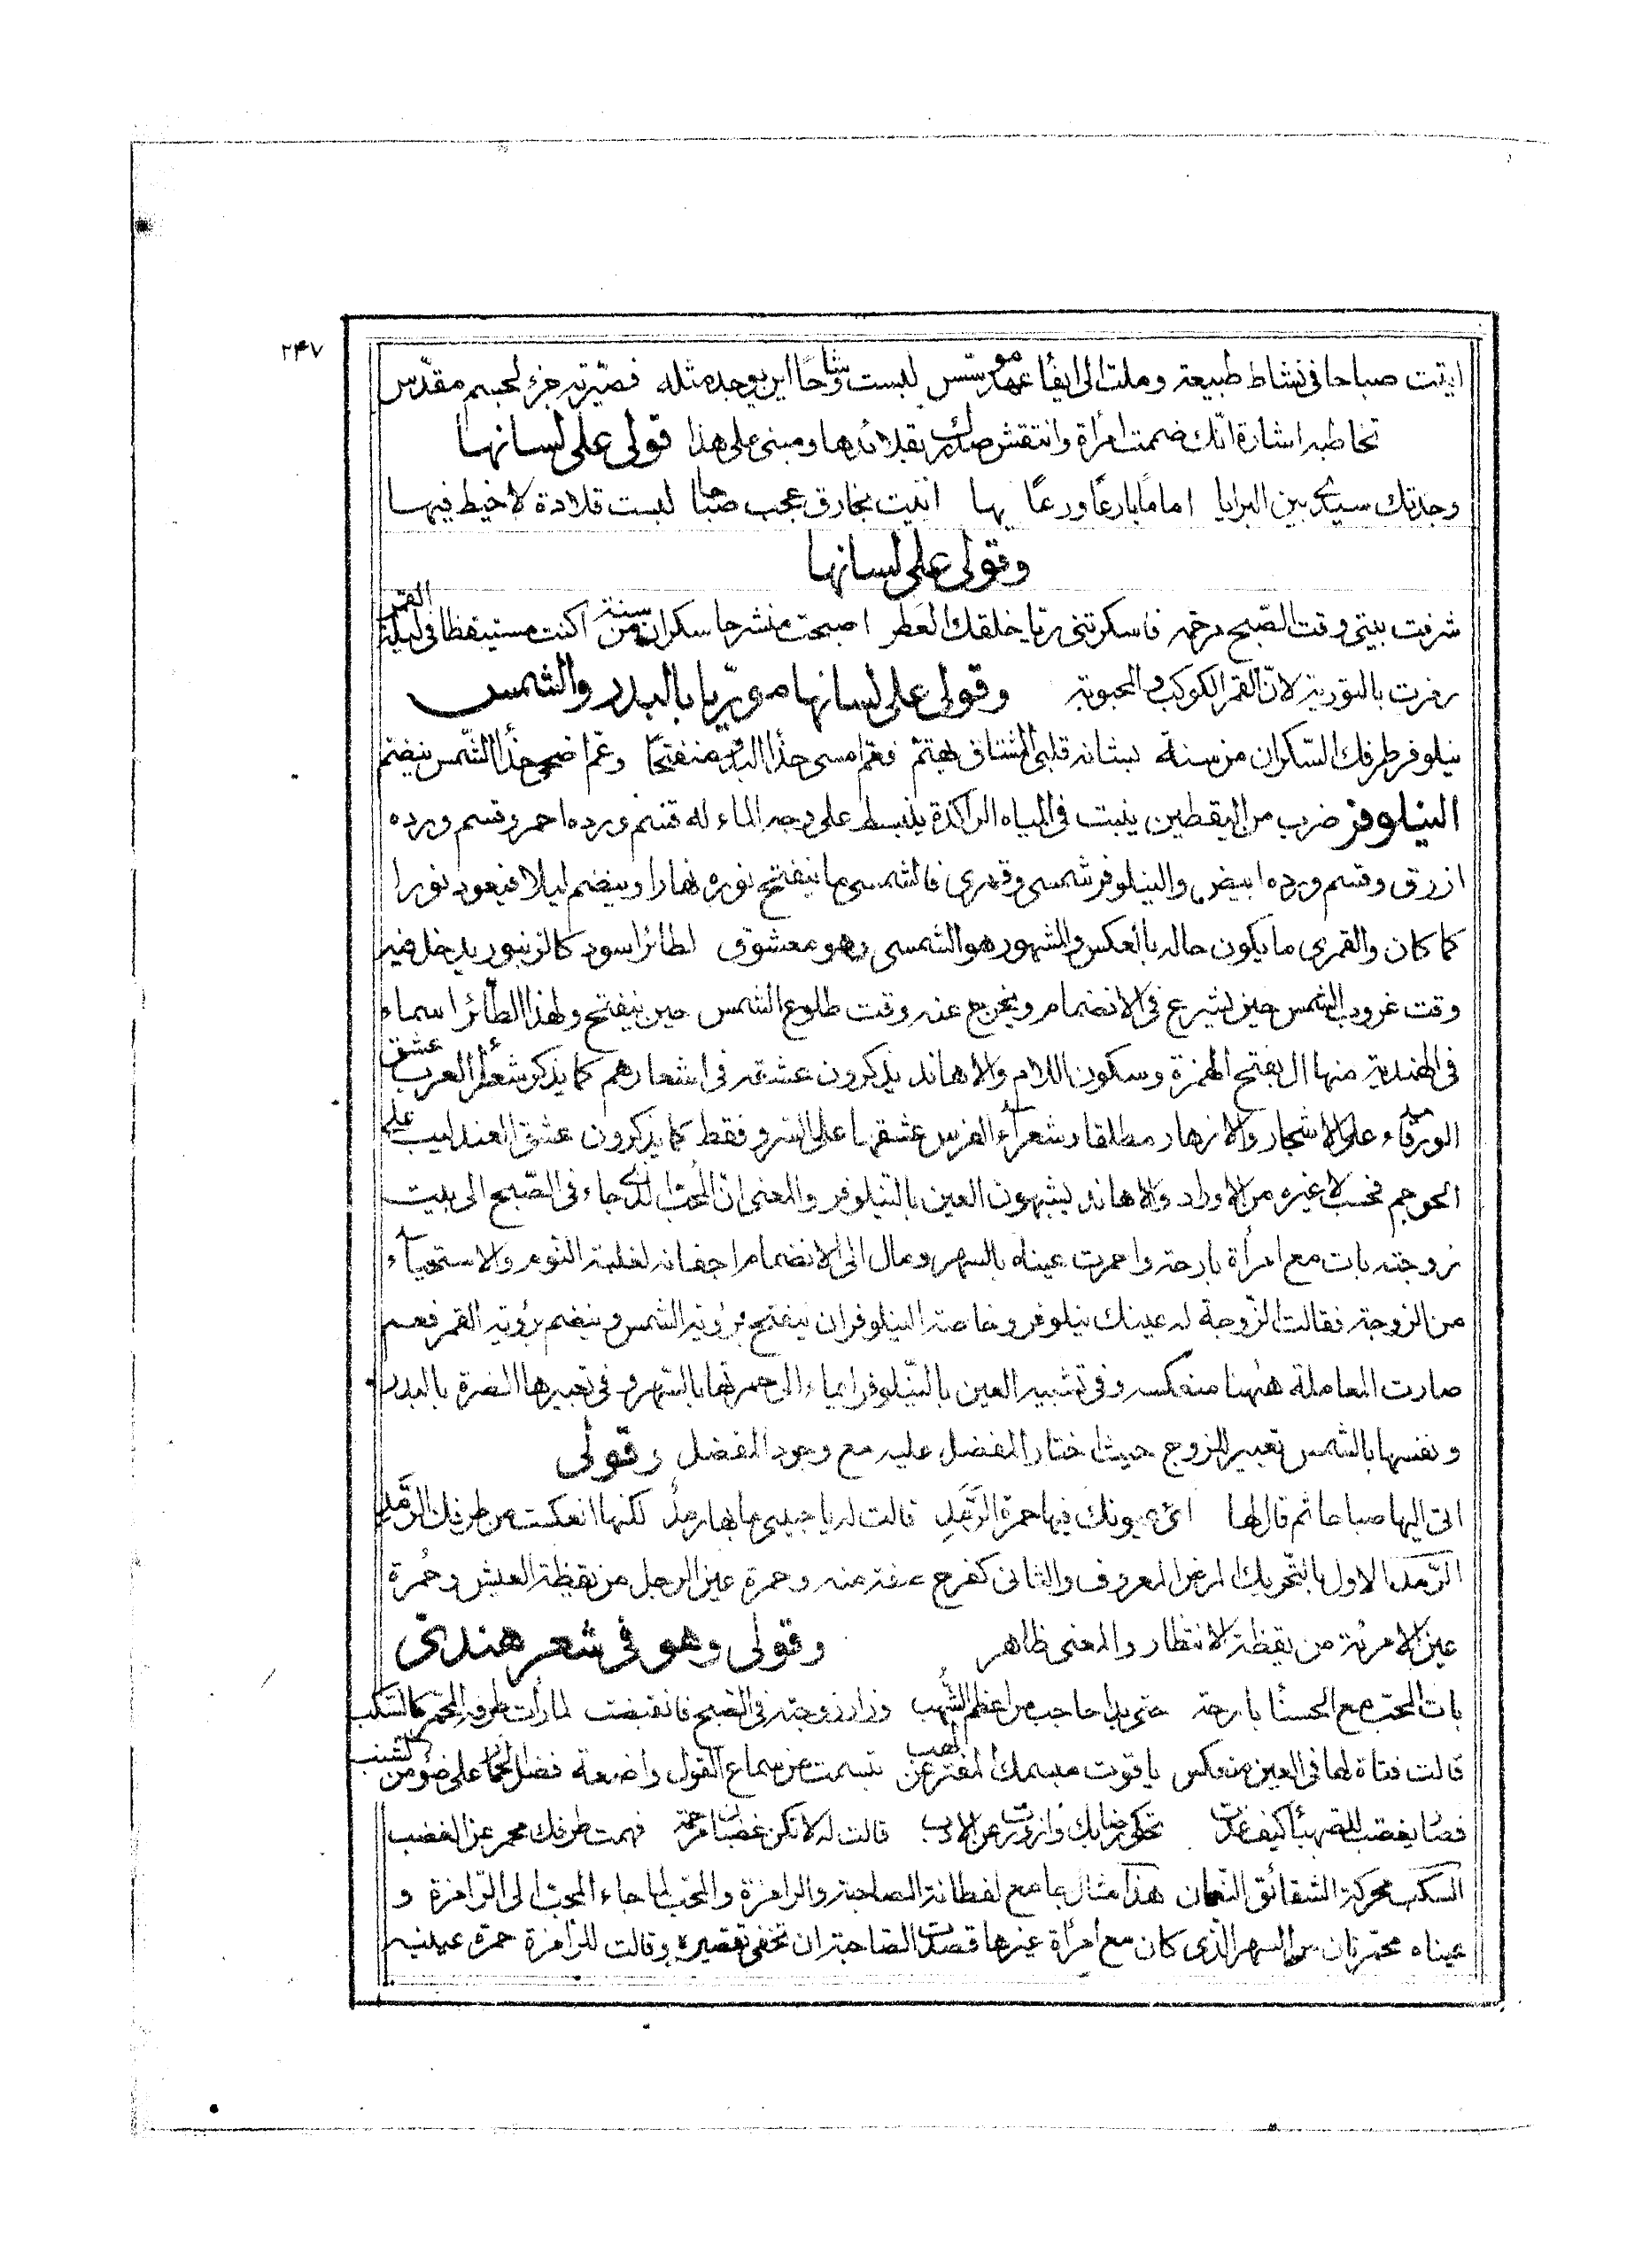 ٢٤٧
اتيت صباحا في نشاط طبيعة وملت الى ايفاء عهد مؤسّس لبست وشاحًا اين يوجد مثله فصيّرته جزء لجسم مقدّس
تخاطبه اشارة انّك ضممت امرأة وانتقش صدرك بقلائدها ومبنى على هذا قولى على لسانها
وجدتك سيدى بين البرايا امامًا بارعًا ورعًا بها اتيت بخارق عجب صباحا لبست قلادة لا خيط فيها
وقولى على لسانها
شرفت بيتى وقت الصّبح مرحمة فاسكرتنى بريّا خلقك العَطر اصبحت منشرحا سكران من سنة اكنت مستيقظا فى ليلة القمر
رمزت بالتورية لانّ القمر الكوكب والمحبوبة وقولى على لسانها مورّيا بالبدر والشمس
نيلوفر طرفك السّكران من سنة بشانه قلبى المشتاق يهتمّ فعمّ امسى حذاء البدر منفتحًا وعمّ اضحى حذاء الشّمس ينضمّ
النيلوفر ضرب من اليقطين ينبت فى المياه الراكدة ينبسط على وجه الماء له قسم ورده احمر وقسم ورده
ازرق وقسم ورده ابيض والنيلوفر شمسى وقمرى فالشمسى ما ينفتح نوره نهارا وينضم ليلا فيعود نورا
كما كان والقمرى ما يكون حاله بالعكس والمشهور هو الشمسى وهو معشوق لطائر اسود كالزنبور يدخل فيه
وقت غروب الشمس حين يشرع فى الانضمام ويخرج عنه وقت طلوع الشمس حين ينفتح ولهذا الطّائر اسماء
فى الهندية منها ال بفتح الهمزة وسكون اللام والاهاند يذكرون عشقه فى اشعارهم كما يذكر شعراء العرب عشق
الورقاء على الاشجار والازهار مطلقا وشعراء الفرس عشقها على السرو فقط كما يذكرون عشق العندليب على
الحوجم فحسب لا غيره من الاوراد والاهاند يشبهون العين بالنيلوفر والمعنى انّ المحبّ الذى جاء فى الصّبح الى بيت
زوجته بات مع امرأة بارحة واحمرت عيناه بالسهر ومال الى الانضمام اجفانه لغلبة النّوم والاستحياء
من الزوجة فقالت الزّوجة له عينك نيلوفر وخاصة النيلوفر ان ينفتح برؤية الشمس وينضم برؤية القمر فعم
صارت المعاملة ههنا منعكسه وفى تشبيه العين بالنّيلوفر ايماء الى حمرتها بالسّهر وفى تعبيرها الضرة بالبدر
ونفسها بالشمس تعيير للزوج حيث اختار المفضل عليه مع وجود المفضل وقولى
اتى اليها صباحا ثم قال لها ارى عيونك فيها حمرة الرَّمَدِ قالت له يا حبيبى ما بها رمدٌ لكنها انعكست من طرفك الرَّمِدِ
الرّمد الاول بالتّحريك المرض المعروف والثانى كفرح صفة منه وحمرة عين الرجل من يقظة العيش وحُمرة
عين الامرأة من يقظة الانتظار والمعنى ظاهر وقولى وهو فى شعر هندىّ
بات المحب مع الحسناء بارحة حتى بدا حاجب من اعظم الشُّهب وزار زوجته فى الصبح فانقبضت لما رأت طرفه المحمر كالسّكب
قالت فتاة لها فى العين منعكس ياقوت مبسمك المفتر عن تبسمت من سماع القول واضعة فضل على ضوء من الشنب
قالت له لا تكن غضبان مرحمة فهمت طرفك محمر عن الغضب
السكب محركة الشقائق النّعمان هذا مثال جامع لفطانة الصاحبة والرامزة والمحب لما جاء المحبّ الى الرّامزة و
عيناه محمّرتان من السهر الّذى كان مع امرأة غيرها قصدت الصّاحبة ان تخفى تقصيره وقالت للرامزة حمرة عينيه